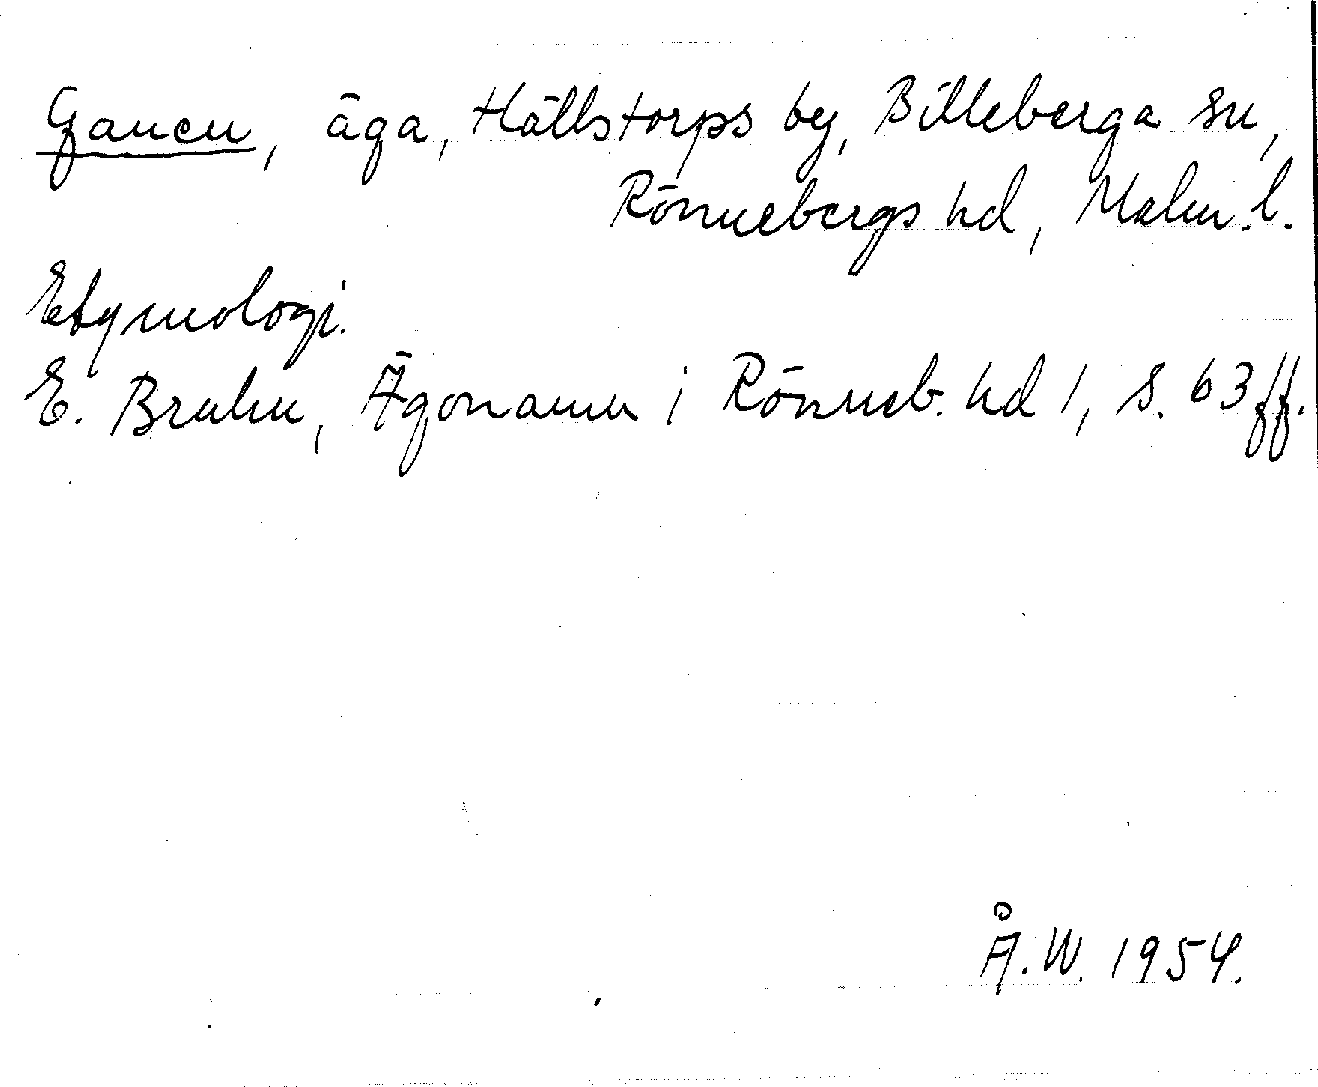 Gaucn, äga, Hällstorps by, Billeberga sn,
Rönnebergs hd, Malm. l.
Etymologi.
E. Bruhn, Ägonamn i Rönneb. hd 1, s. 63 ff.
Å.W. 1954.